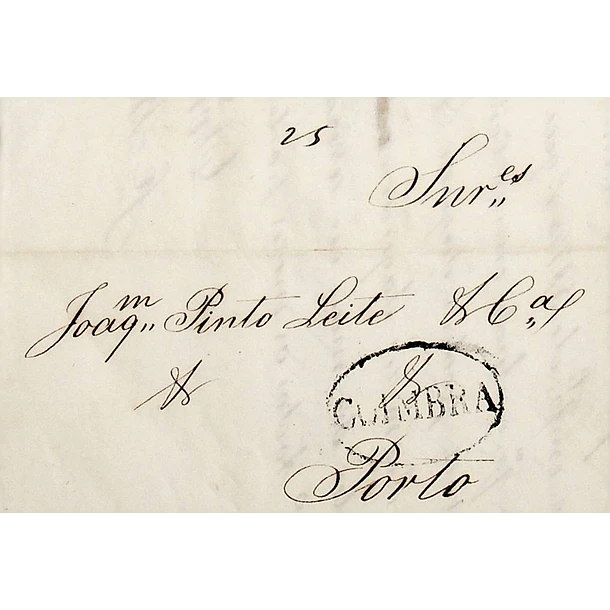 25
Snr.es
Joaq.m Pinto Leite & C.a
& &
COIMBRA
Porto